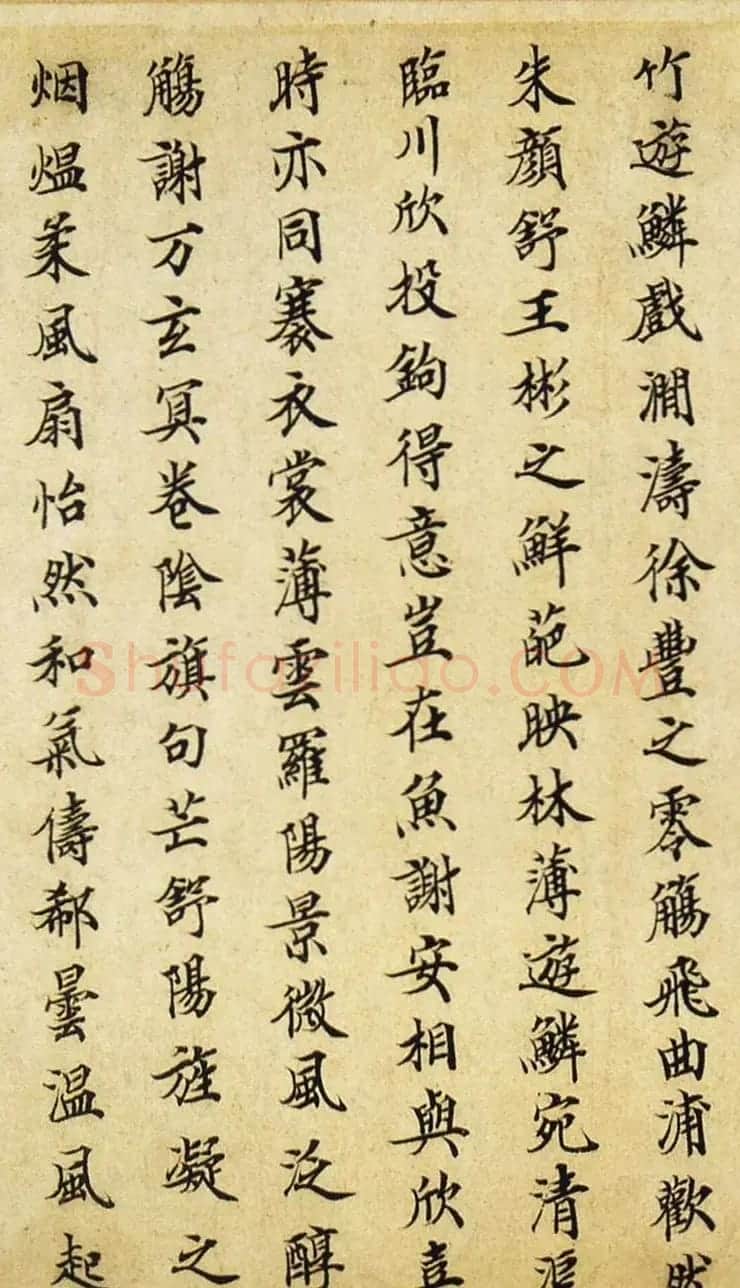 竹遊鱗戲澗濤徐豐之零觴飛曲浦歡然
朱顏舒王彬之鮮葩映林薄遊鱗宛清
臨川欣投鉤得意豈在魚謝安相與欣
時亦同褰衣裳薄雲羅陽景微風泛醇
觴謝万玄冥卷陰旗句芒舒陽旌凝之
烟煴柔風扇怡然和氣儔郗曇温風起
Shufaziliao.COM